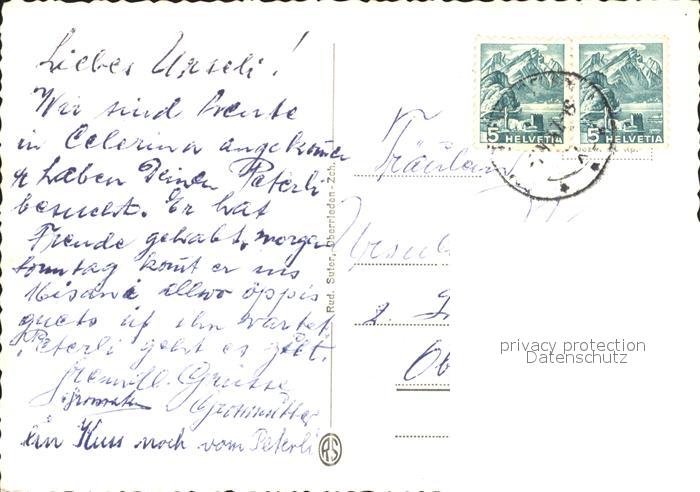 Liebes Urseli!
Wir sind heute
in Celerina angekommen
& haben Deinen Peterli
besucht. Er hat
Freude gehabt, morgen
Sonntag komt er ins
Misani allwo öppis
guets uf ihn wartet.
Peterli geht es gut.
Freundl. Grüsse
Grossmutter
Ein Kuss noch vom Peterli
Rud. Suter, Oberrieden-Zch.
RS
5 HELVETIA
5 HELVETIA
Fräulein
Ursul
z.
Ob
privacy protection
Datenschutz